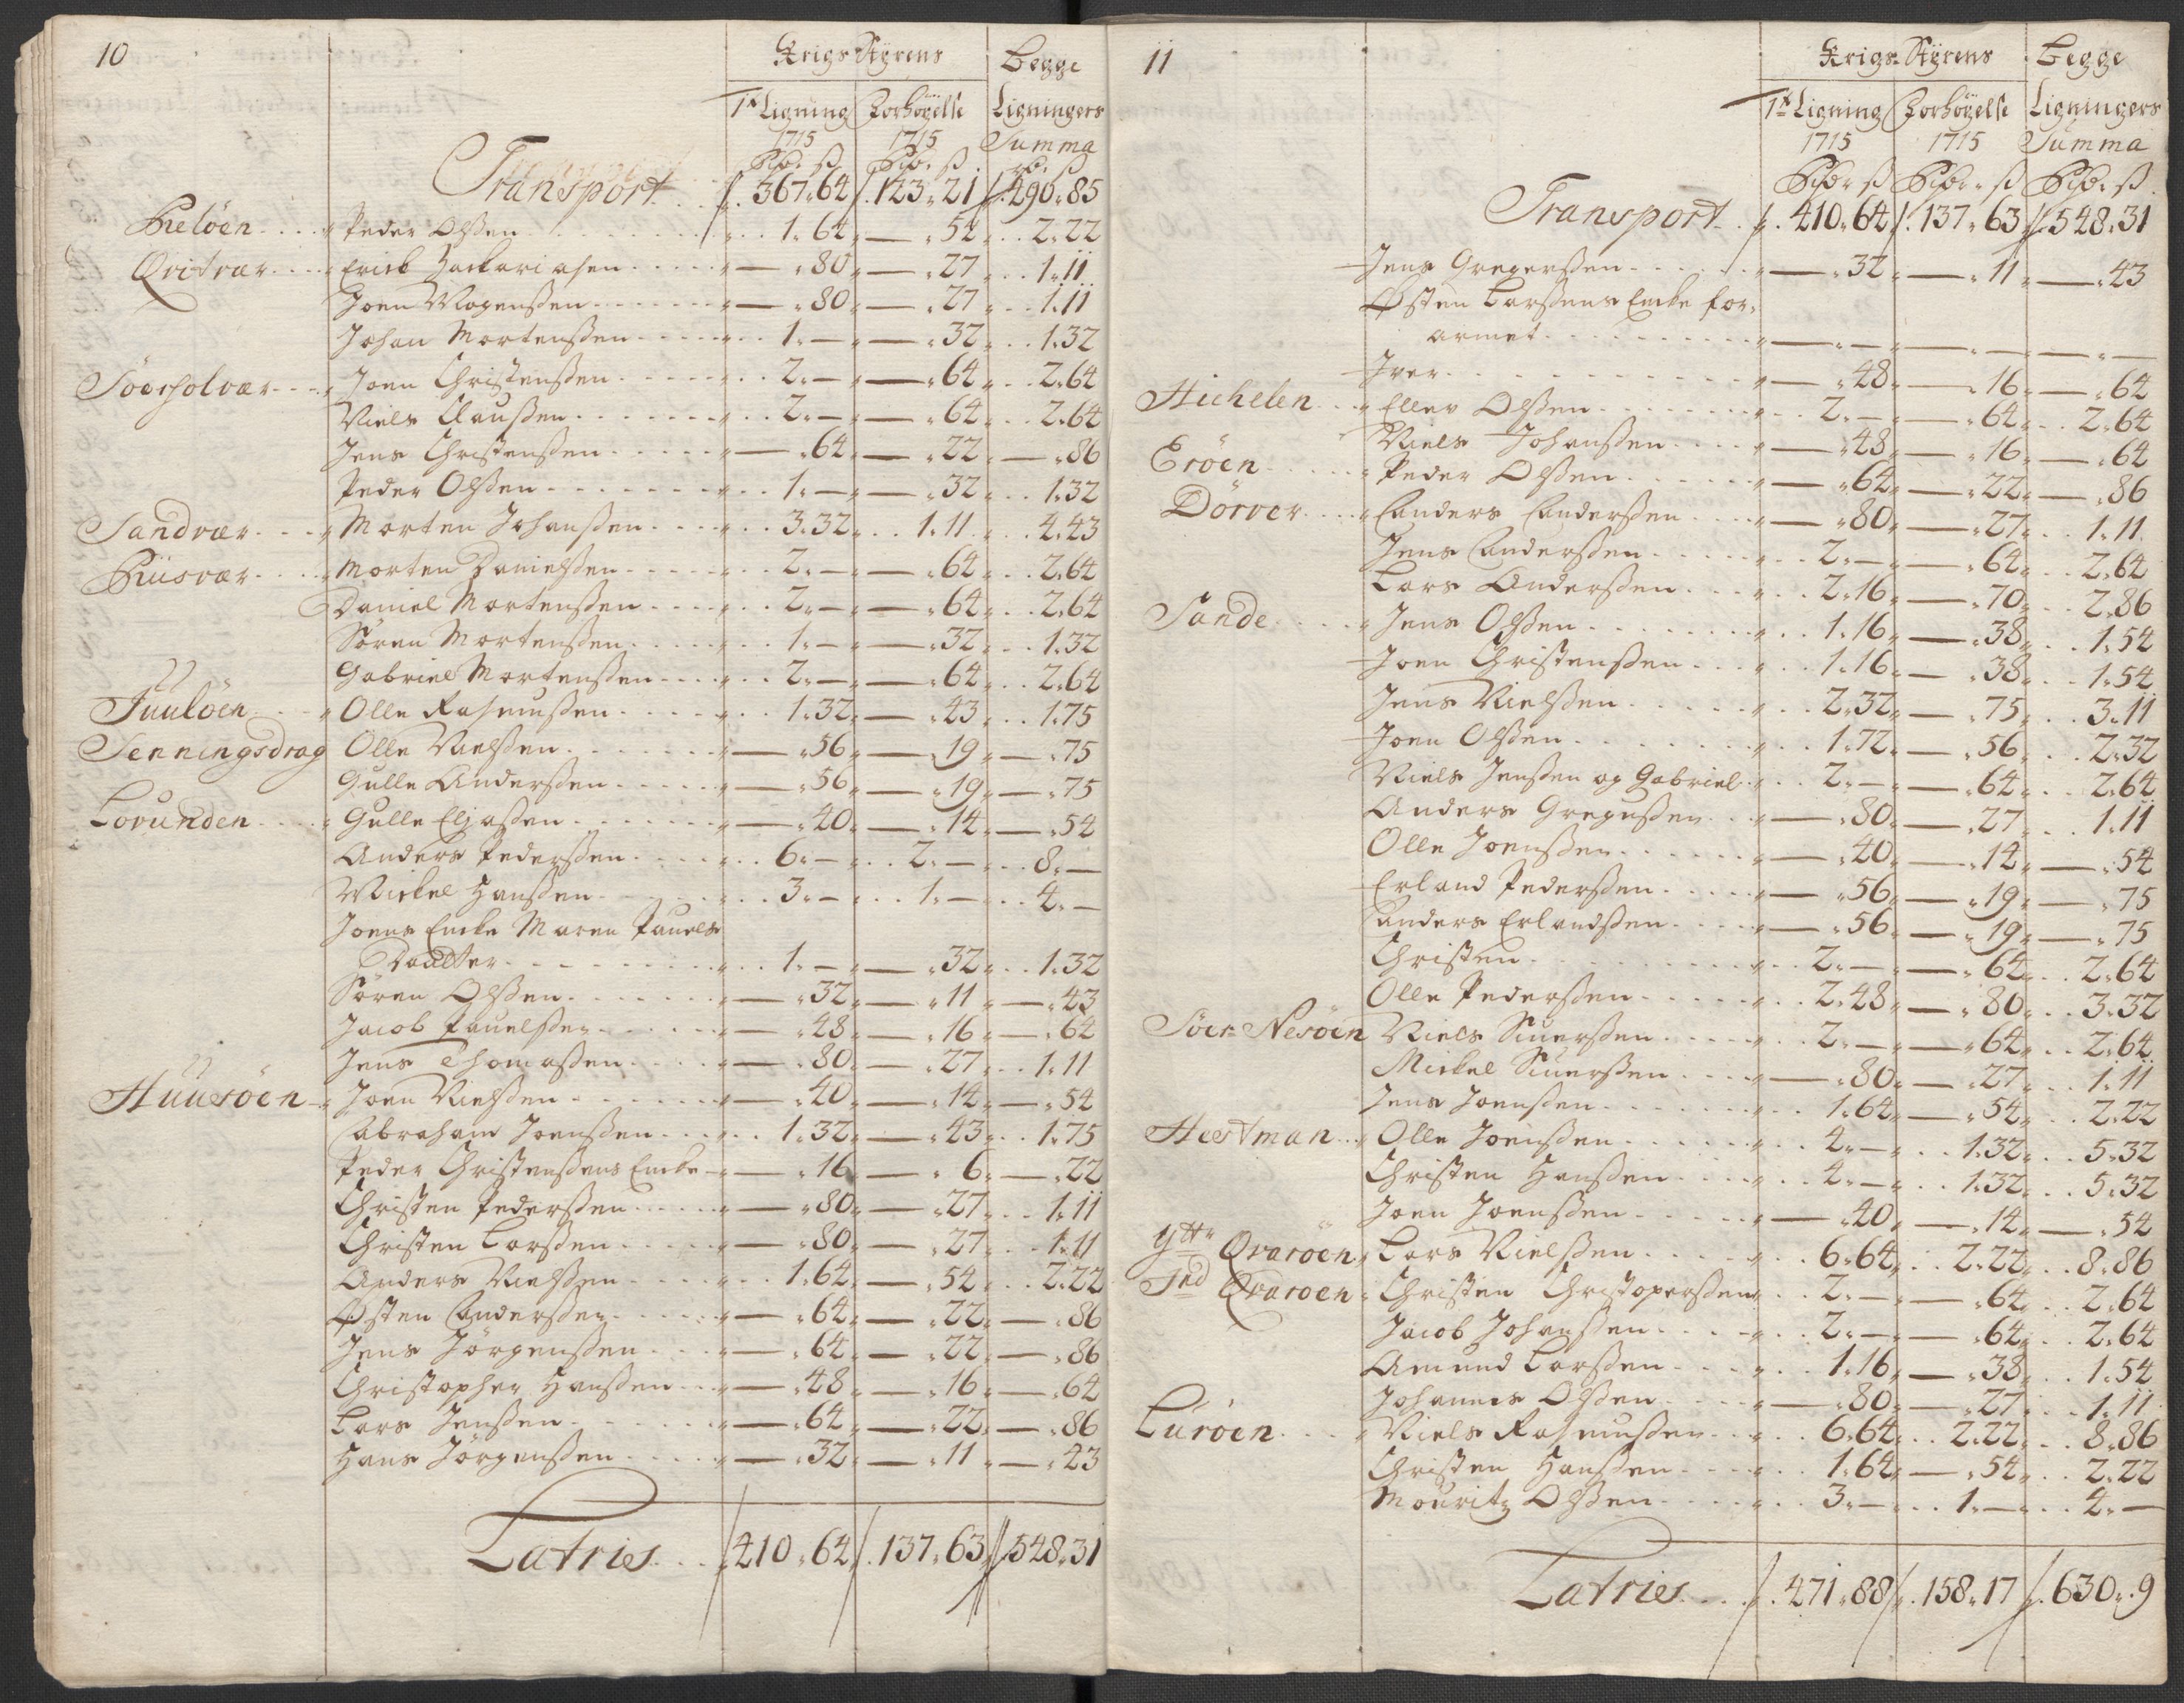 10
Krigs Styrens Begge
1te Ligning Forhøyelse Ligningers
1715 1715 Summa
Rdr. ß Rdr. ß Rd. ß
Transport 367.64 123.21 490.85
Peder Olßen 1.64 — .54 2.22
Qvitvær Erick Zackariasen — .80 — .27 1.11
Joen Mogenßen — .80 — .27 1.11
Johan Mortenßen 1.— — .32 1.32
Søerholvær Joen Christenßen 2.— — .64 2.64
Niels Claußen 2.— — .64 2.64
Jens Christenßen — .64 — .22 — .86
Peder Olßen 1.— — .32 1.32
Sandvær Morten Johanßen 3.32 1.11 4.43
Huusvær Morten Danielßen 2.— — .64 2.64
Daniel Mortenßen 2.— — .64 2.64
Søren Mortenßen 1.— — .32 1.32
Gabriel Mortenßen 2.— — .64 2.64
Juuløen Olle Rasmußen 1.32 — .43 1.75
Senningsdrag Olle Nielßen — .56 — .19 — .75
Gulle Anderßen — .56 — .19 — .75
Lovunden Gulle Eliaßen — .40 — .14 — .54
Anders Pederßen 6.— 2.— 8.—
Mickel Hanßen 3.— 1.— 4.—
Joens Encke Maren Pauels
Daatter 1.— — .32 1.32
Søren Olßen — .32 — .11 — .43
Jacob Pauelßen — .48 — .16 — .64
Jens Thomaßen — .80 — .27 1.11
Huusøen Joen Nielßen — .40 — .14 — .54
Abraham Joenßen 1.32 — .43 1.75
Peder Christenßens Encke — .16 — .6 — .22
Christen Pederßen — .80 — .27 1.11
Christen Larßen — .80 — .27 1.11
Anders Nielßen 1.64 — .54 2.22
Østen Anderßen — .64 — .22 — .86
Jens Jørgenßen — .64 — .22 — .86
Christopher Hanßen — .48 — .16 — .64
Lars Jenßen — .64 — .22 — .86
Hans Jørgenßen — .32 — .11 — .43
Latries 410.64 137.63 548.31
11
Krigs Styrens Begge
1te Ligning Forhøyelse Ligningers
1715 1715 Summa
Rdr. ß Rdr. ß Rdr. ß
Transport 410.64 137.63 548.31
Jens Gregerßen — .32 — .11 — .43
Østen Larßens Encke for-
armet — . — — . — — . —
Iver — .48 — .16 — .64
Hichelen Ellev Olßen 2.— — .64 2.64
Niels Johanßen — .48 — .16 — .64
Erøen Peder Olßen — .64 — .22 — .86
Dørver Anders Anderßen — .80 — .27 1.11
Jens Anderßen 2.— — .64 2.64
Lars Anderßen 2.16 — .70 2.86
Sande Jens Olßen 1.16 — .38 1.54
Joen Christenßen 1.16 — .38 1.54
Jens Nielßen 2.32 — .75 3.11
Joen Olßen 1.72 — .56 2.32
Niels Jenßen og Gabriel 2.— — .64 2.64
Anders Gregußen — .80 — .27 1.11
Olle Joenßen — .40 — .14 — .54
Erland Pederßen — .56 — .19 — .75
Anders Erlandßen — .56 — .19 — .75
Christen 2.— — .64 2.64
Olle Pederßen 2.48 — .80 3.32
Søer Nesøen Niels Siuerßen 2.— — .64 2.64
Mickel Siuerßen — .80 — .27 1.11
Jens Joenßen 1.64 — .54 2.22
Hestman Olle Joenßen 4.— 1.32 5.32
Christen Hanßen 4.— 1.32 5.32
Joen Joenßen — .40 — .14 — .54
Yttr Qvarøen Lars Nielßen 6.64 2.22 8.86
Ind Qvarøen Christen Christoperßen 2.— — .64 2.64
Jacob Johanßen 2.— — .64 2.64
Amund Larßen 1.16 — .38 1.54
Johannes Olßen — .80 — .27 1.11
Lurøen Niels Rasmußen 6.64 2.22 8.86
Christen Hanßen 1.64 — .54 2.22
Mouritz Olßen 3.— 1.— 4.—
Latries 471.88 158.17 630.9